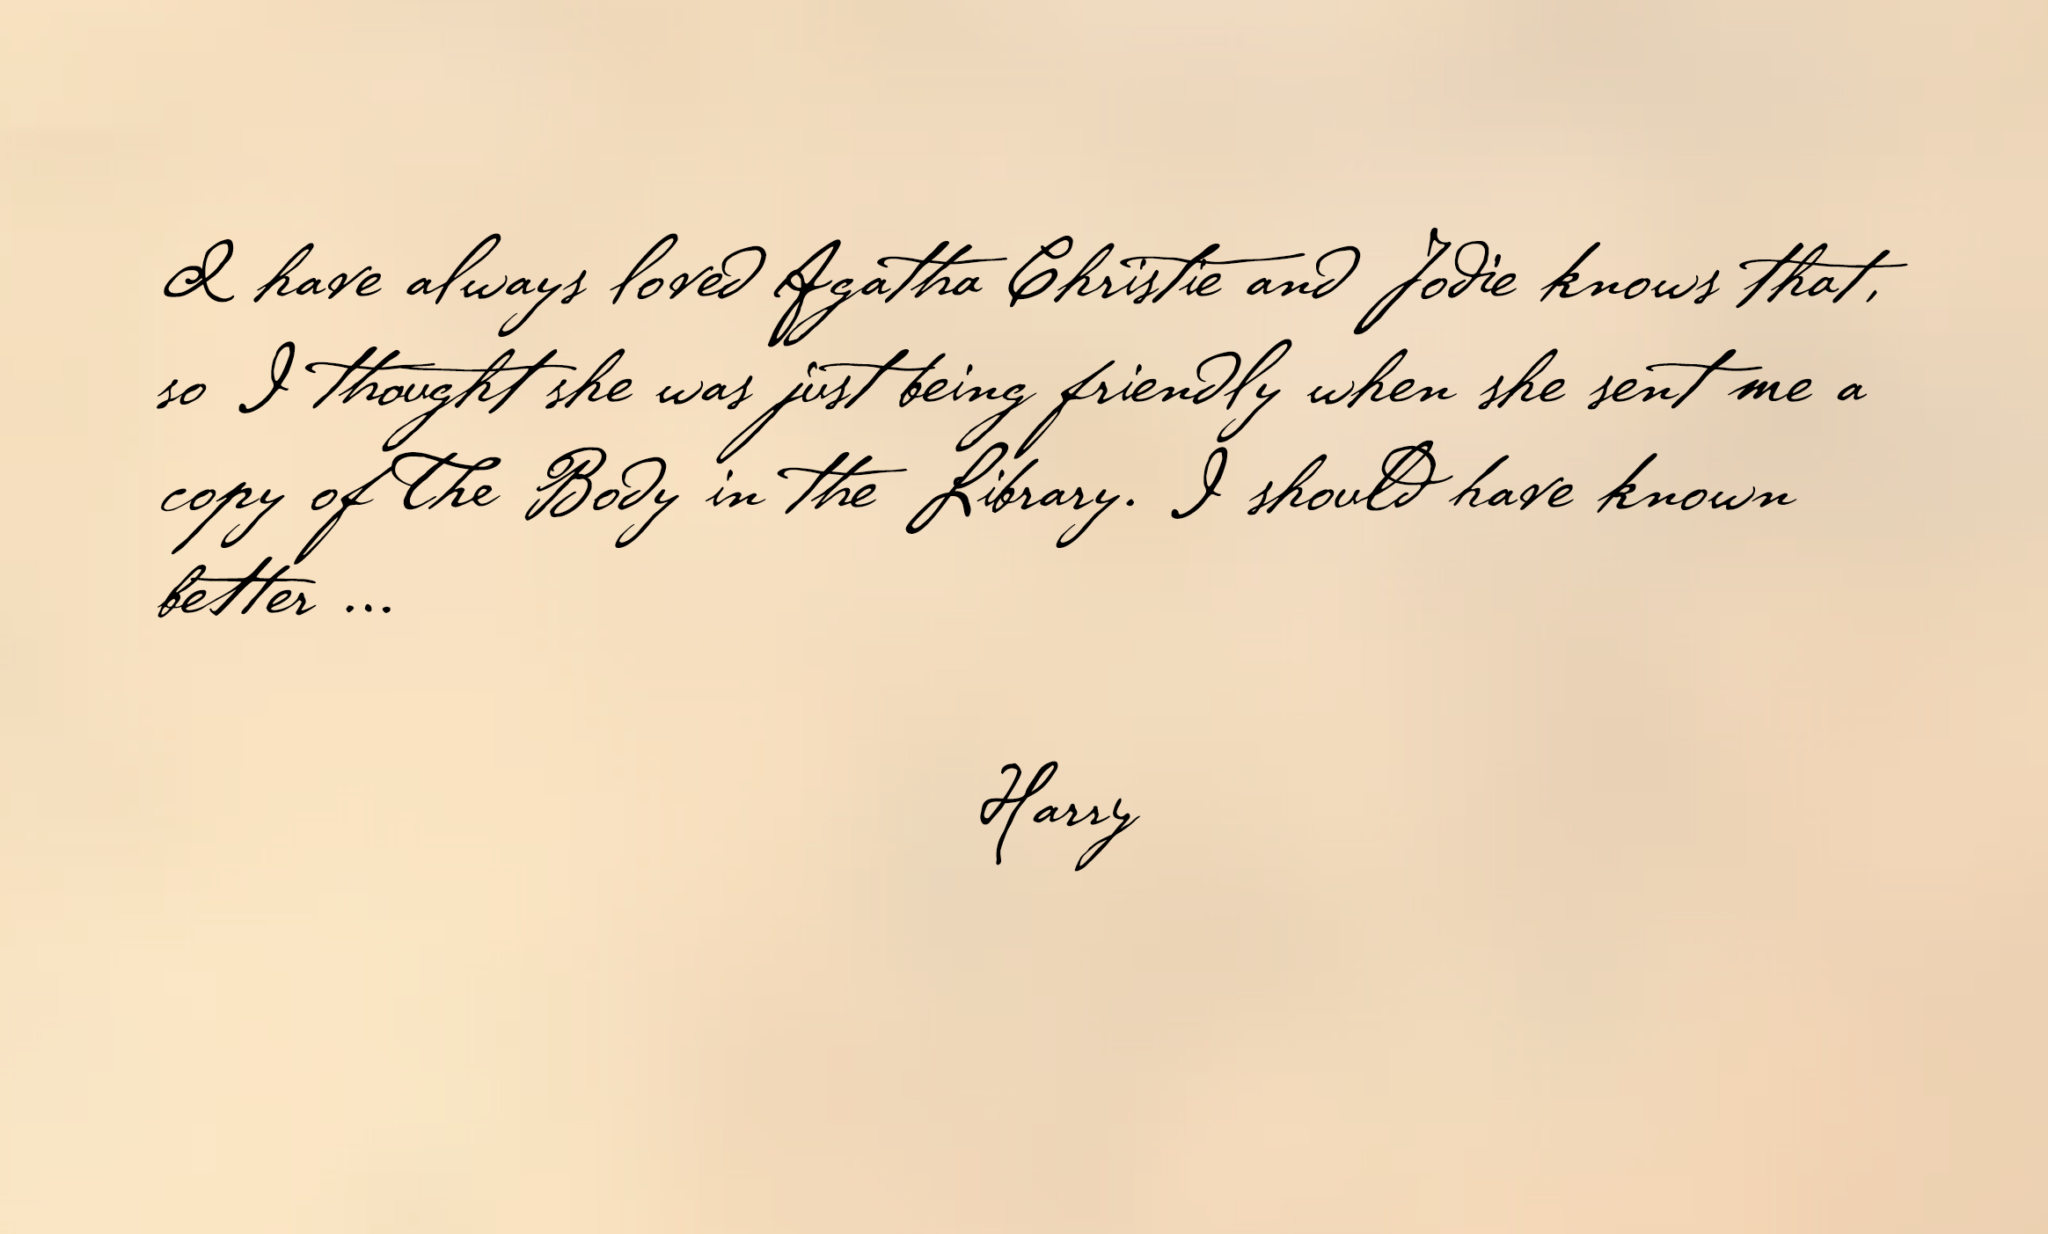 I have always loved Agatha Christie and Jodie knows that,
so I thought she was just being friendly when she sent me a
copy of The Body in the Library. I should have known
better ...
Harry